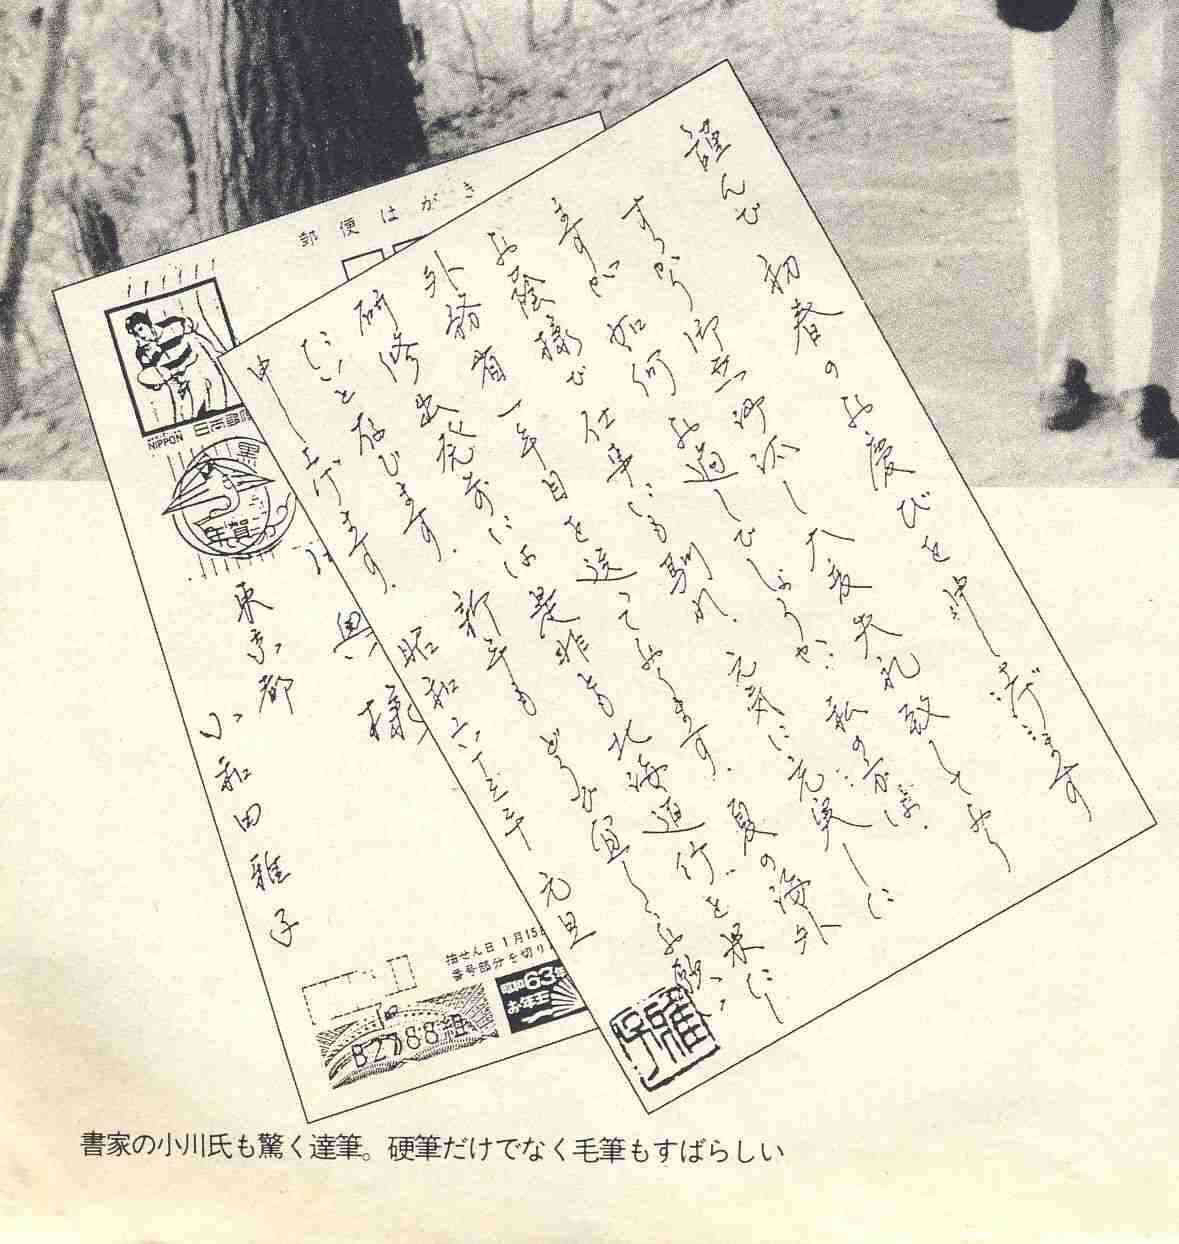 謹んで初春のお慶びを申し上げます
すっかり御無沙汰し大変失礼致しておりますが
如何お過しでしょうか。私の方は、
お蔭様で仕事にも馴れ、元気に
外務省一年目を送っております。夏の海外
研修出発前には是非とも北海道行を果し
たいと存じます。新年もどうぞ宜しくお願い
申し上げます。
昭和六十三年 元旦
雅子
郵便はがき
NIPPON
日本郵便
年賀
様
東京都
小和田雅子
抽せん日 1月15
番号部分を切り
昭和63年
お年玉
B2788組
書家の小川氏も驚く達筆。硬筆だけでなく毛筆もすばらしい